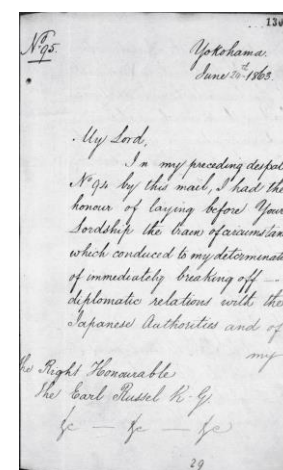 134
No. 95.
Yokohama.
June 24th 1863.
My Lord,
In my preceding despat
No 94 by this mail, I had the
honour of laying before Your
Lordship the train of circumstan
which conduced to my determinati
of immediately breaking off —
diplomatic relations with the
Japanese Authorities and of
my
The Right Honourable
The Earl Russel K. G.
&c — &c — &c
29